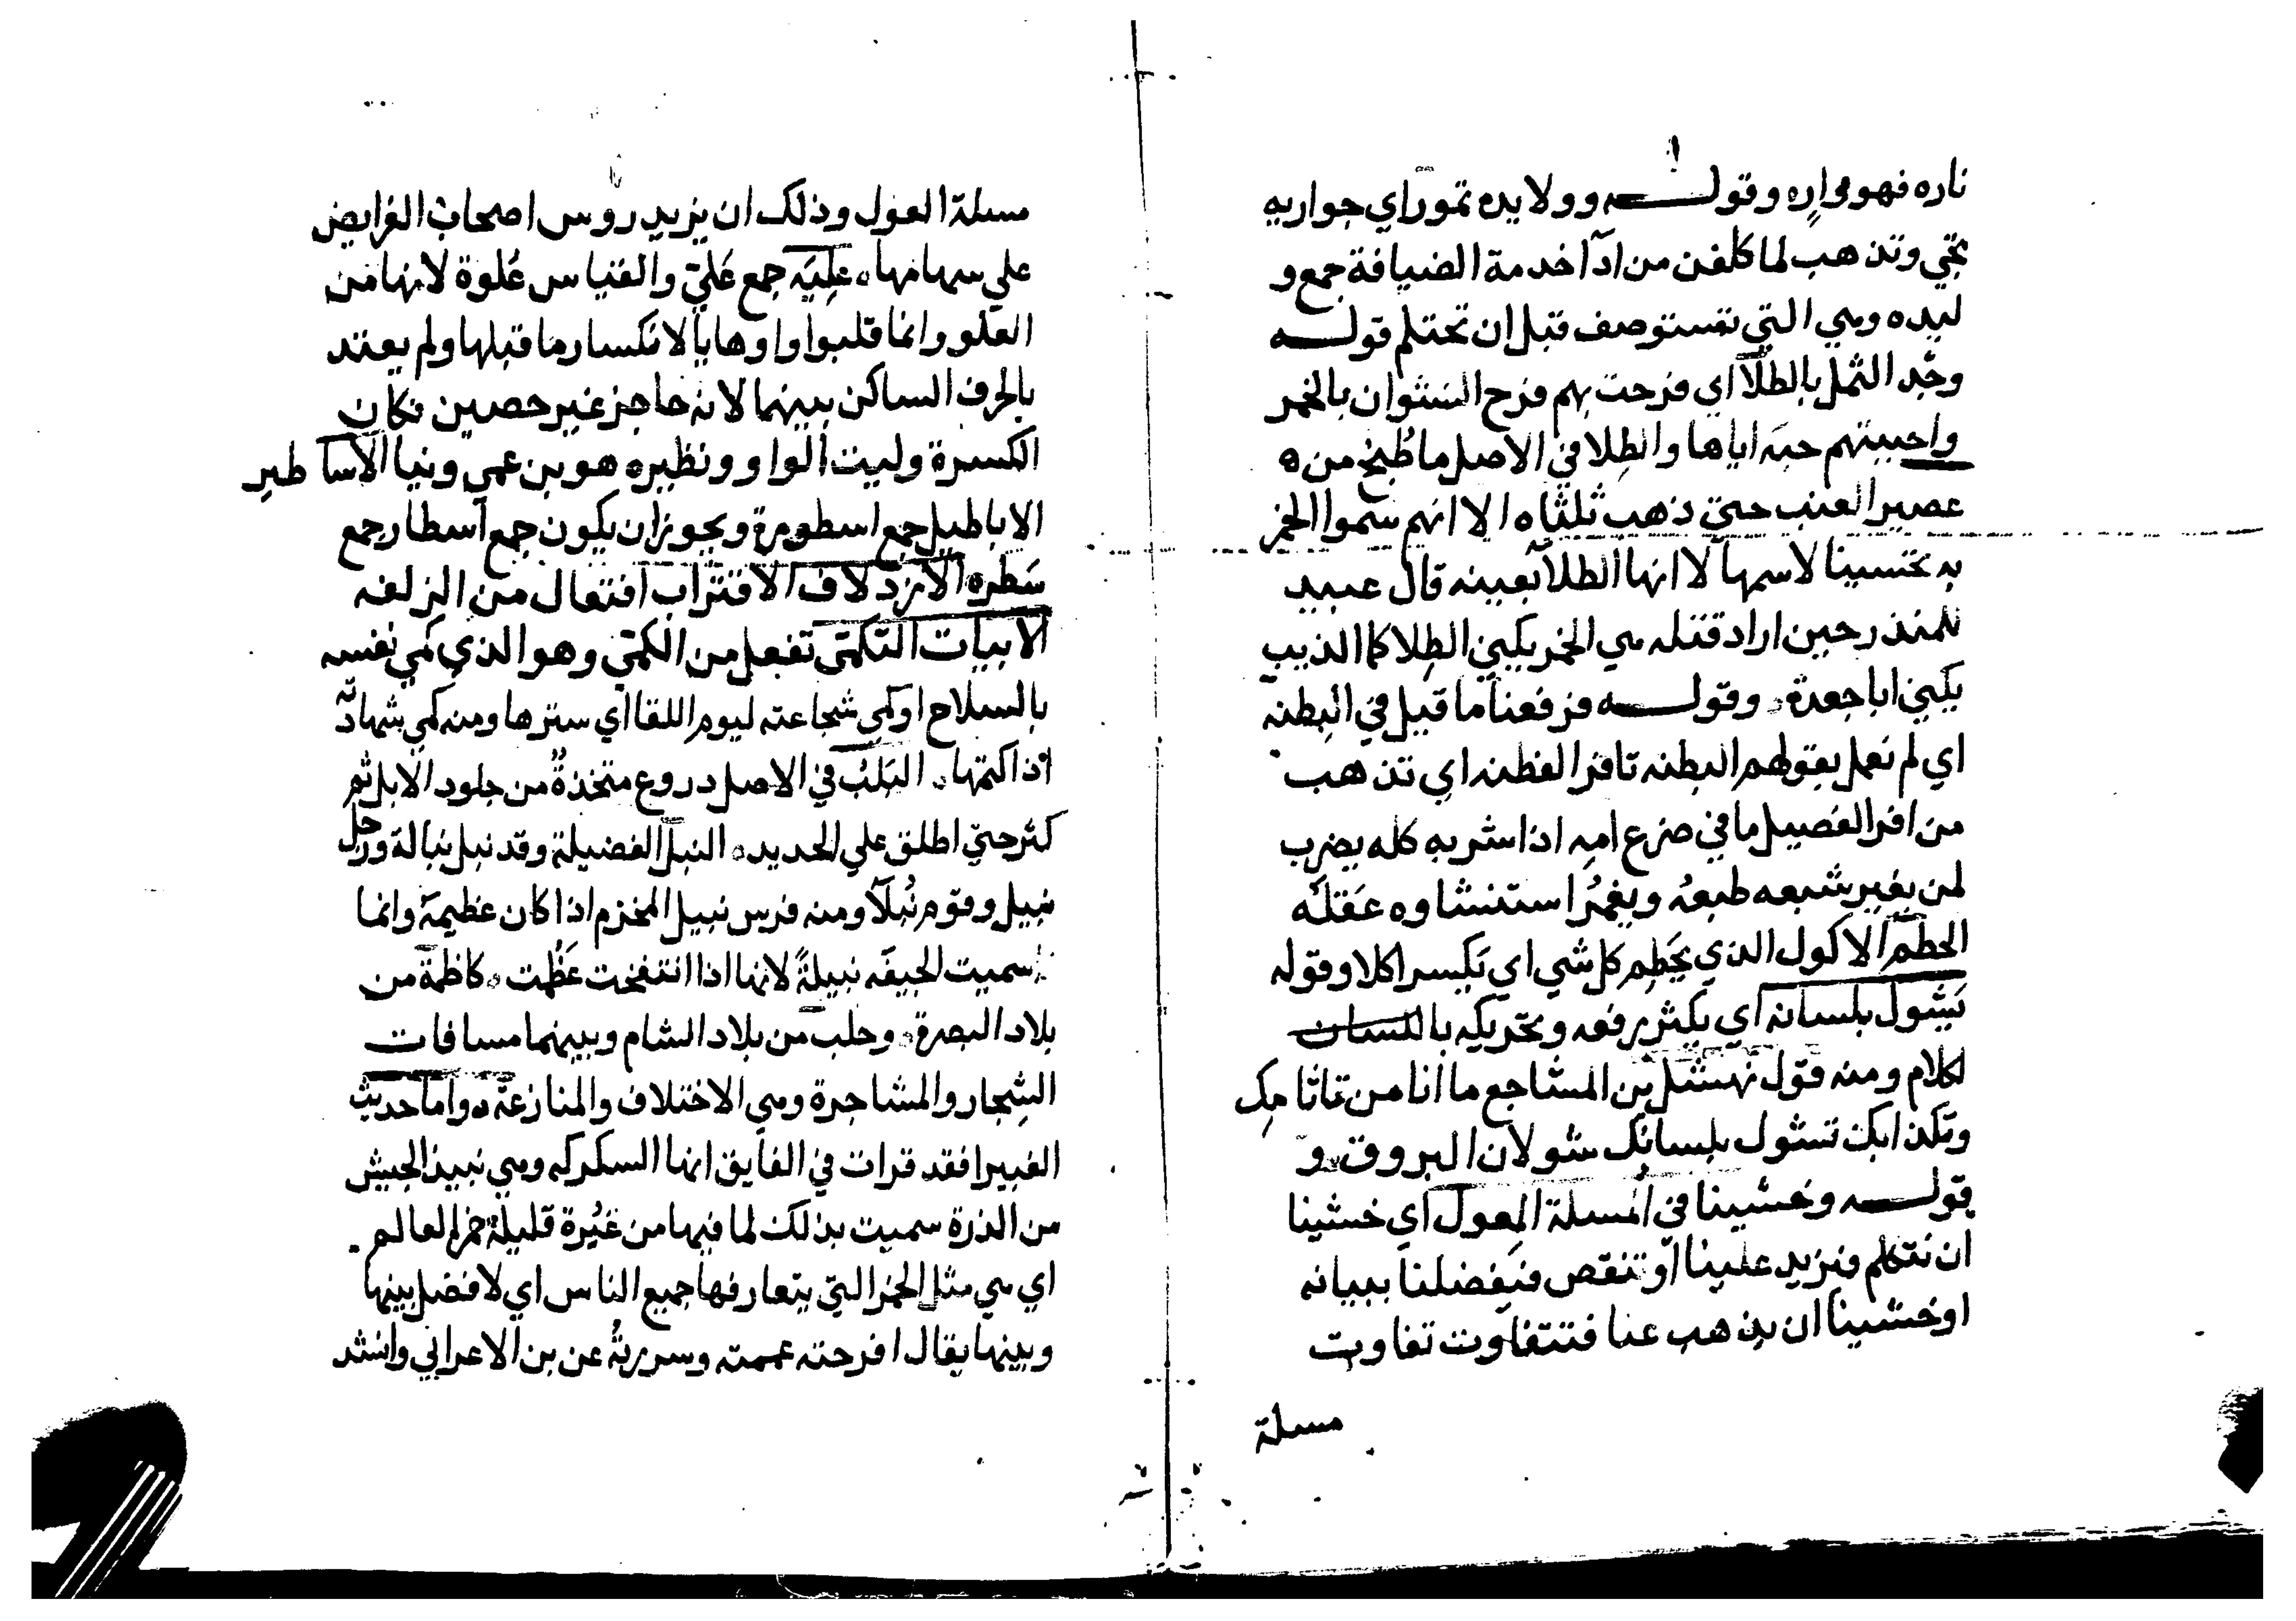 ناره فهو موارٍه وقولـــه وولايده تمور اي جواريه
تجي وتذهب لما كلفن من ادآ اخدمة الضيافة جمع و
ليده وهي التي تستوصف قبل ان تحتلم قولـــه
وجد الثمل بالطلآ اي فرحت بهم فرح النشوان بالخمر
واحببتهم حبه اياها والطلا في الاصل ما طُبخ من ه
عصير العنب حتي ذهب ثلثاه الا انهم سموا الخمر
به تحسينا لاسمها لا انها الطلآ بعينه قال عبيد
للمنذر حين اراد قتله هي الخمر يكني الطلا كما الذيب
يكني ابا جعدة . وقولـــه فرفعنا ما قيل في البطنه
اي لم نعمل بقولهم البطنه تافر الفطنه اي تذهب
من افر الفصيل ما في ضرع امه اذا شربه كله يضرب
لمن يغير شبعه طبعه ويغمُر استنشاوه عَقله
الحطم الاكول الذي يَحطِم كل شي اي يَكسر اكلا وقوله
يَشول بلسانه اي يكثر رفعه وتحريكه باللسان
لكلام ومنه قول نهشل بن المشاجع ما انا من تاثامك
وتكذابك تشول بلسانك شولان البروق و
قولـــه وخشينا في المسلة العول اي خشينا
ان نتكلم فنزيد علينا او تنقص فيفضلنا ببيانه
او خشينا ان يذهب عنا فتتفاوت تفاوت
مسلة
مسلة العول وذلك ان يزيد روس اصحاب الفرايض
علي سهامها . عِليَه جمع عَليّ والقياس عُلوة لانها من
العلو وانما قلبوا واوها يآ لانكسار ما قبلها ولم يعتد
بالحرف الساكن بينهما لانه حاجز غير حصين فكان
الكسرة وليت الواو ونظيره هو بن عمي ودنيا الآساطير
الاباطيل جمع اسطورة ويجوز ان يكون جمع آسطار جمع
سَطره الازدلاف الاقتراب افتعال من الزلفه
الابيات التكمّي تفعل من الكمّي وهو الذي كمي نفسه
بالسلاح او كمي شجاعته ليوم اللقا اي سترها ومنه كمي شهادته
اذا كتمها . اليَلَبُ في الاصل دروع متخذةٌ من جلود الابل ثم
كثر حتي اطلق علي الحديد . النبل الفضيلة وقد نبل نبالة ورجل
نبيل وقوم نُبلآ ومنه فرس نبيل المحزم اذا كان عظيمه وانما
سميت الجيفه نبيلةً لانها اذا انتفخت عَظُمت . كاظمة من
بلاد البصرة . وحلب من بلاد الشام وبينهما مسافات
الشِجار والمشاجرة وهي الاختلاف والمنازعة ه واما حديث
الغبيرا فقد قرات في الفايق انها السكركه وهي نبيذ الحبش
من الذرة سميت بذلك لما فيها من غُبرة قليلة خمر العالم .
اي هي مثل الخمر التي يتعارفها جميع الناس اي لا فضل بينها
وبينها يقال افرحته غممته وسررته عن بن الاعرابي وانشد